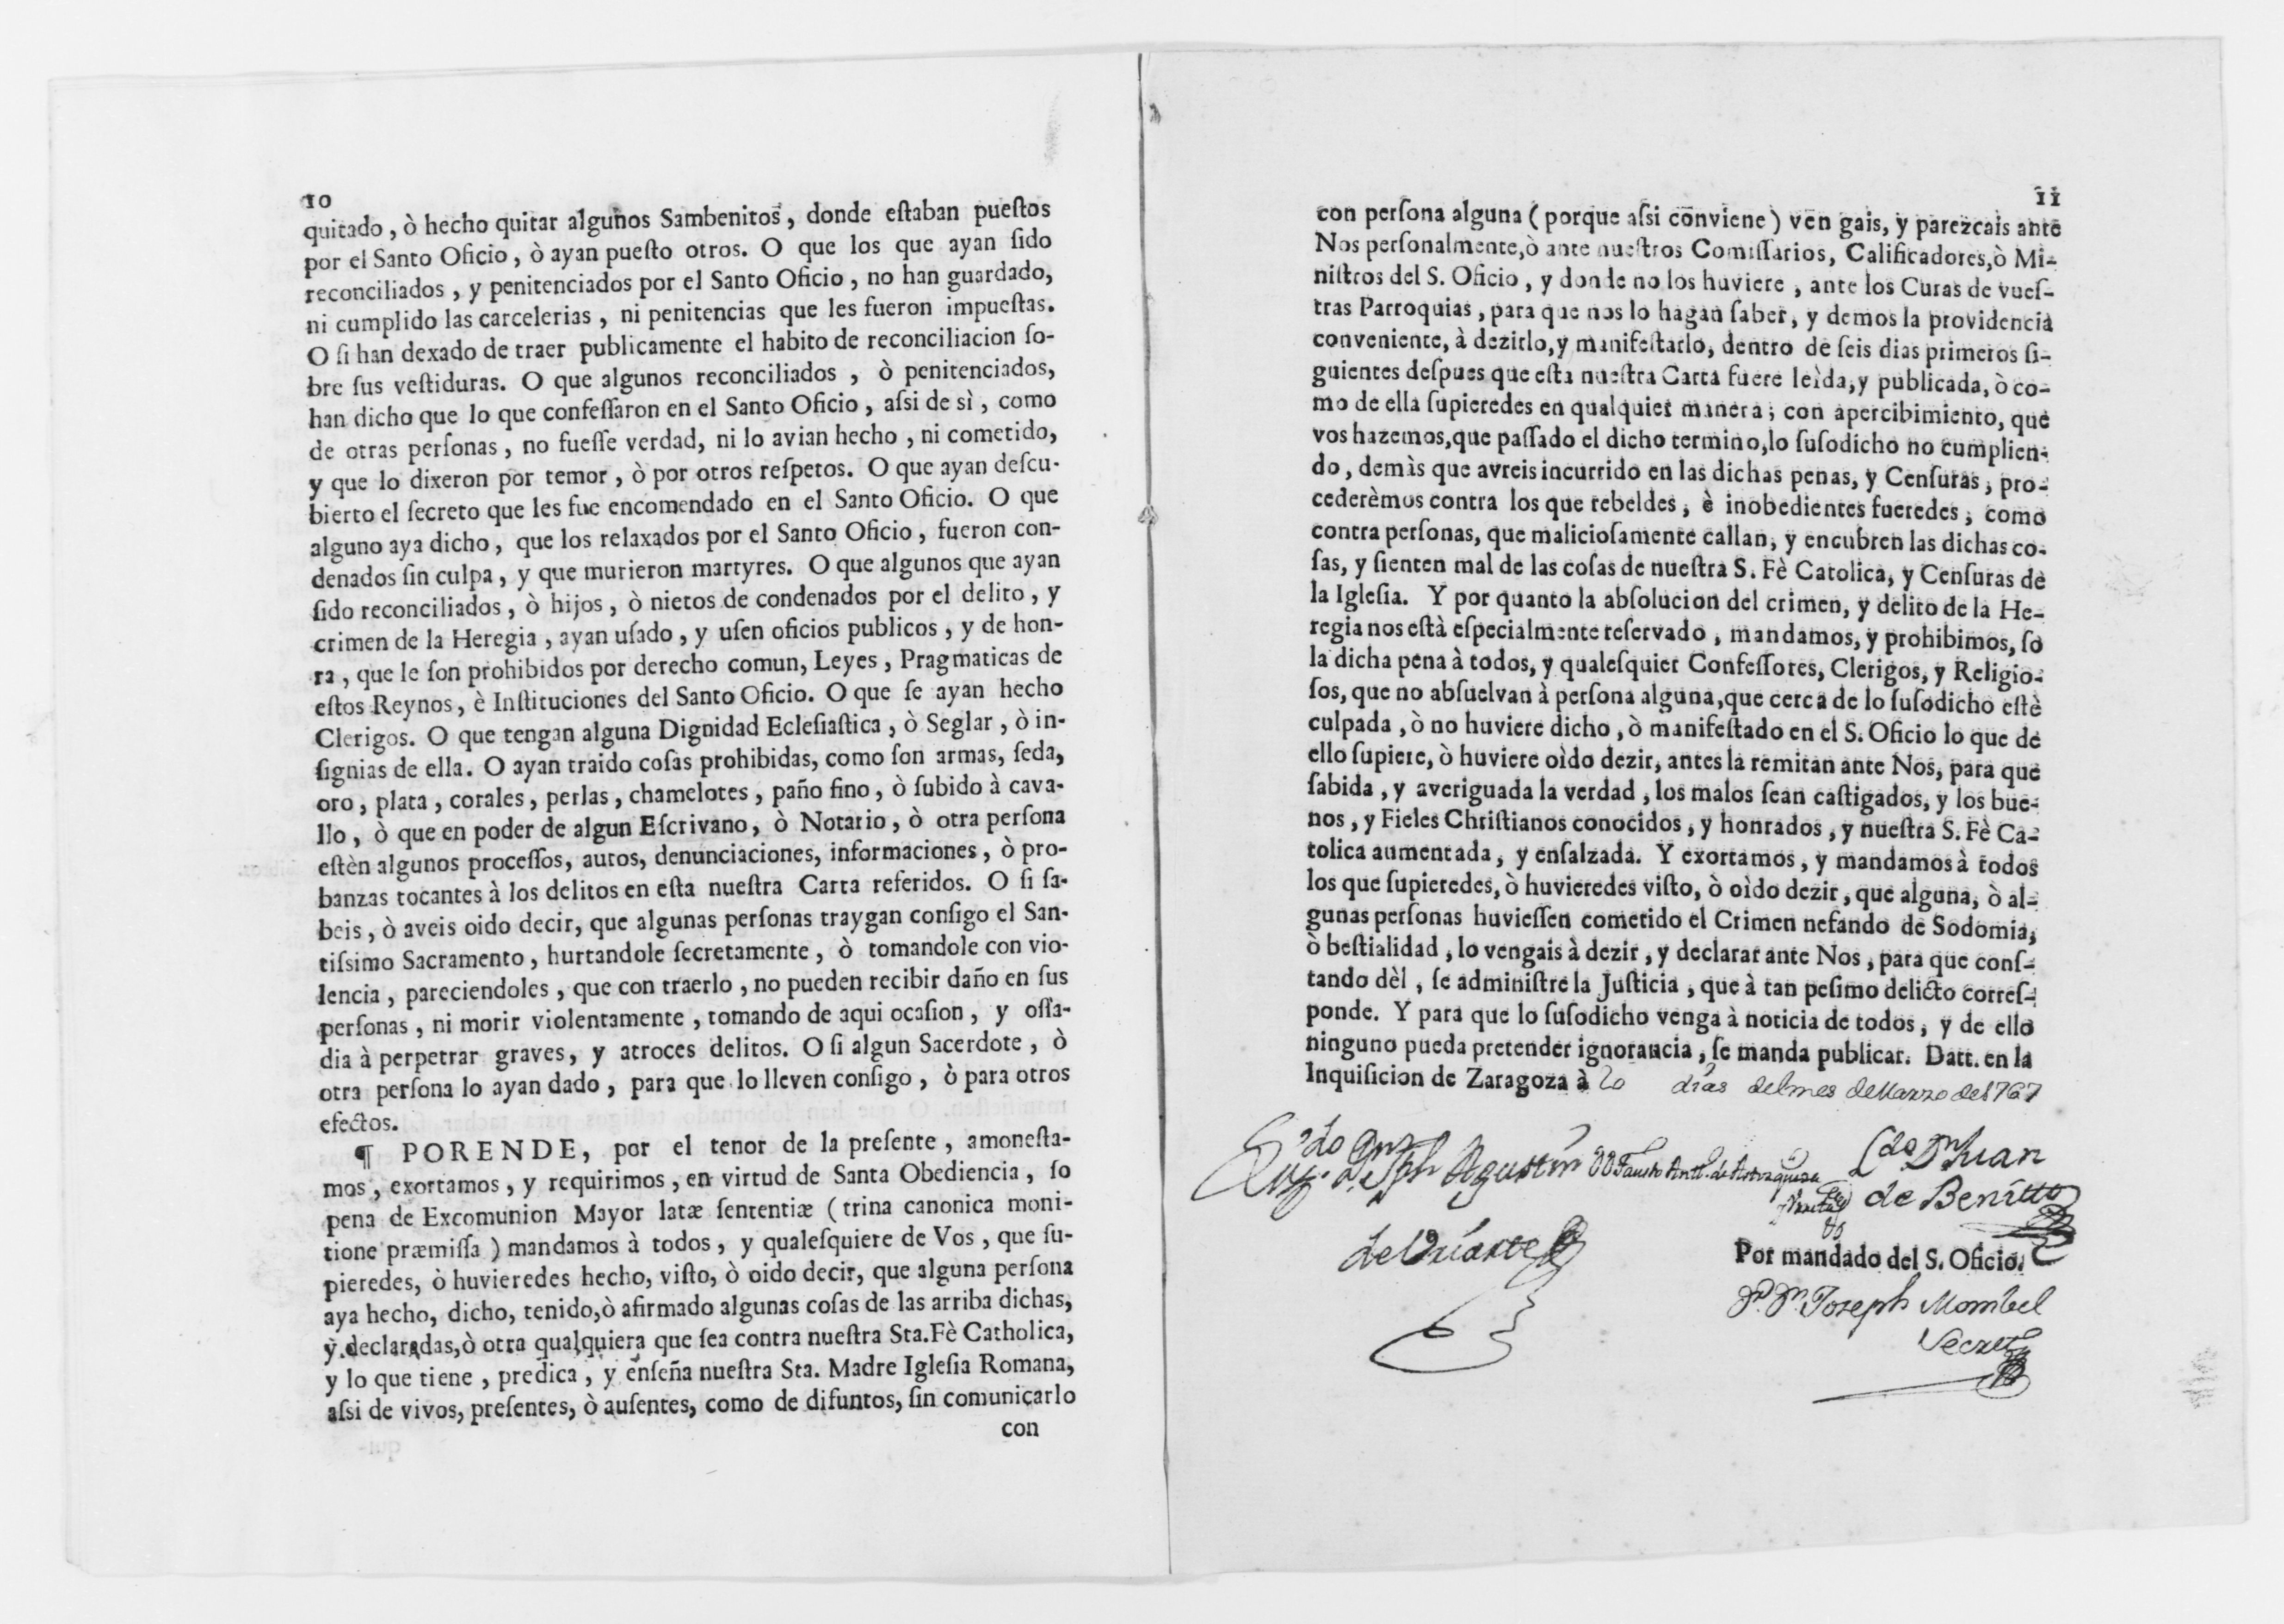 10
quitado, ò hecho quitar algunos Sambenitos, donde eſtaban pueſtos
por el Santo Oficio, ò ayan pueſto otros. O que los que ayan ſido
reconciliados, y penitenciados por el Santo Oficio, no han guardado,
ni cumplido las carcelerias, ni penitencias que les fueron impueſtas.
O ſi han dexado de traer publicamente el habito de reconciliacion ſo-
bre ſus veſtiduras. O que algunos reconciliados, ò penitenciados,
han dicho que lo que confeſſaron en el Santo Oficio, aſsi de sì, como
de otras perſonas, no fueſſe verdad, ni lo avian hecho, ni cometido,
y que lo dixeron por temor, ò por otros reſpetos. O que ayan deſcu-
bierto el ſecreto que les fue encomendado en el Santo Oficio. O que
alguno aya dicho, que los relaxados por el Santo Oficio, fueron con-
denados ſin culpa, y que murieron martyres. O que algunos que ayan
ſido reconciliados, ò hijos, ò nietos de condenados por el delito, y
crimen de la Heregia, ayan uſado, y uſen oficios publicos, y de hon-
ra, que le ſon prohibidos por derecho comun, Leyes, Pragmaticas de
eſtos Reynos, è Inſtituciones del Santo Oficio. O que ſe ayan hecho
Clerigos. O que tengan alguna Dignidad Ecleſiaſtica, ò Seglar, ò in-
ſignias de ella. O ayan traido coſas prohibidas, como ſon armas, ſeda,
oro, plata, corales, perlas, chamelotes, paño fino, ò ſubido à cava-
llo, ò que en poder de algun Eſcrivano, ò Notario, ò otra perſona
eſtèn algunos proceſſos, autos, denunciaciones, informaciones, ò pro-
banzas tocantes à los delitos en eſta nueſtra Carta referidos. O ſi ſa-
beis, ò aveis oido decir, que algunas perſonas traygan conſigo el San-
tiſsimo Sacramento, hurtandole ſecretamente, ò tomandole con vio-
lencia, pareciendoles, que con traerlo, no pueden recibir daño en ſus
perſonas, ni morir violentamente, tomando de aqui ocaſion, y oſſa-
dia à perpetrar graves, y atroces delitos. O ſi algun Sacerdote, ò
otra perſona lo ayan dado, para que lo lleven conſigo, ò para otros
efectos.
¶ PORENDE, por el tenor de la preſente, amoneſta-
mos, exortamos, y requirimos, en virtud de Santa Obediencia, ſo
pena de Excomunion Mayor latæ ſententiæ (trina canonica moni-
tione præmiſſa) mandamos à todos, y qualeſquiere de Vos, que ſu-
pieredes, ò huvieredes hecho, viſto, ò oido decir, que alguna perſona
aya hecho, dicho, tenido, ò afirmado algunas coſas de las arriba dichas,
y declaradas, ò otra qualquiera que ſea contra nueſtra Sta. Fè Catholica,
y lo que tiene, predica, y enſeña nueſtra Sta. Madre Igleſia Romana,
aſsi de vivos, preſentes, ò auſentes, como de difuntos, ſin comunicarlo
con
11
con perſona alguna (porque aſsi conviene) ven gais, y parezcais ante
Nos perſonalmente, ò ante nueſtros Comiſſarios, Calificadores, ò Mi-
niſtros del S. Oficio, y donde no los huviere, ante los Curas de vueſ-
tras Parroquias, para que nos lo hagan ſaber, y demos la providencia
conveniente, à dezirlo, y manifeſtarlo, dentro de ſeis dias primeros ſi-
guientes deſpues que eſta nueſtra Carta fuere leìda, y publicada, ò co-
mo de ella ſupieredes en qualquier manera; con apercibimiento, que
vos hazemos, que paſſado el dicho termino, lo ſuſodicho no cumplien-
do, demàs que avreis incurrido en las dichas penas, y Cenſuras, pro-
cederèmos contra los que rebeldes, è inobedientes fueredes, como
contra perſonas, que malicioſamente callan, y encubren las dichas co-
ſas, y ſienten mal de las coſas de nueſtra S. Fè Catolica, y Cenſuras de
la Igleſia. Y por quanto la abſolucion del crimen, y delito de la He-
regia nos eſtà eſpecialmente reſervado, mandamos, y prohibimos, ſo
la dicha pena à todos, y qualeſquier Confeſſores, Clerigos, y Religio-
ſos, que no abſuelvan à perſona alguna, que cerca de lo ſuſodicho eſtè
culpada, ò no huviere dicho, ò manifeſtado en el S. Oficio lo que de
ello ſupiere, ò huviere oìdo dezir, antes la remitan ante Nos, para que
ſabida, y averiguada la verdad, los malos ſean caſtigados, y los bue-
nos, y Fieles Chriſtianos conocidos, y honrados, y nueſtra S. Fè Ca-
tolica aumentada, y enſalzada. Y exortamos, y mandamos à todos
los que ſupieredes, ò huvieredes viſto, ò oìdo dezir, que alguna, ò al-
gunas perſonas huvieſſen cometido el Crimen nefando de Sodomia,
ò beſtialidad, lo vengais à dezir, y declarar ante Nos, para que conſ-
tando dèl, ſe adminiſtre la Juſticia, que à tan peſimo delicto correſ-
ponde. Y para que lo ſuſodicho venga à noticia de todos, y de ello
ninguno pueda pretender ignorancia, ſe manda publicar. Datt. en la
Inquiſicion de Zaragoza à 20 dias del mes de Marzo de 1767
Agustin
Dn Juan
de Benitto
Por mandado del S. Oficio.
Dn Joseph Mombel
Secret